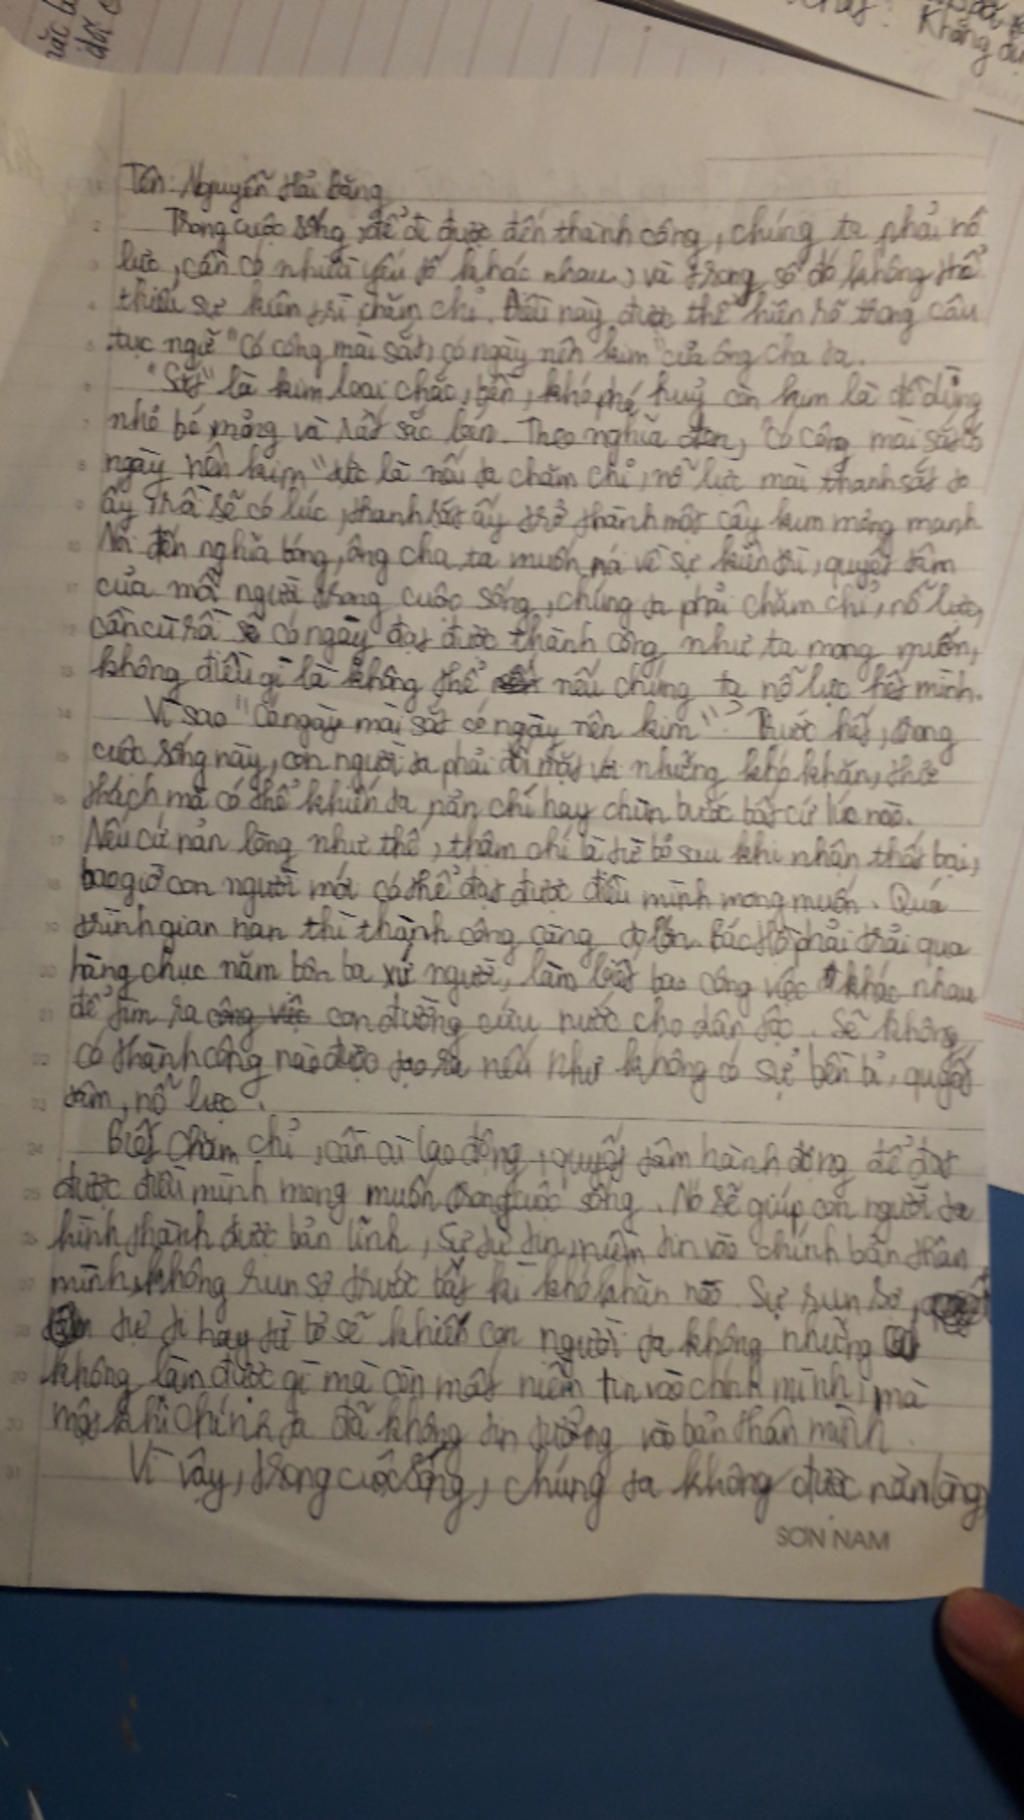 rắc
Khẳng
Tên: Nguyễn Hải Đăng
Trong cuộc sống, để đi được đến thành công, chúng ta phải nỗ
lực, cần có nhiều yếu tố khác nhau, và trong số đó không thể
thiếu sự kiên trì chăm chỉ. Điều này được thể hiện rõ trong câu
tục ngữ "Có công mài sắt, có ngày nên kim" của ông cha ta.
"Sắt" là kim loại chắc, bền, khó phá huỷ còn kim là đồ dùng
nhỏ bé, mỏng và rất sắc bén. Theo nghĩa đen, "Có công mài sắt có
ngày nên kim" tức là nếu ta chăm chỉ, nỗ lực mài thanh sắt to
ấy rồi sẽ có lúc, thanh sắt ấy trở thành một cây kim mỏng manh
Nói đến nghĩa bóng, ông cha ta muốn nói về sự kiên trì, quyết tâm
của mỗi người trong cuộc sống, chúng ta phải chăm chỉ, nỗ lực,
cần cù rồi sẽ có ngày đạt được thành công như ta mong muốn,
không điều gì là không thể nếu chúng ta nỗ lực hết mình.
Vì sao "Có ngày mài sắt có ngày nên kim"? Trước hết, trong
cuộc sống này, con người ta phải đối mặt với những khó khăn, thử
thách mà có thể khiến ta nản chí hay chùn bước bất cứ lúc nào.
Nếu cứ nản lòng như thế, thậm chí là từ bỏ sau khi nhận thất bại,
bao giờ con người mới có thể đạt được điều mình mong muốn. Quá
trình gian nan thì thành công càng to lớn. Bác Hồ phải trải qua
hàng chục năm bôn ba xứ người, làm biết bao công việc khác nhau
để tìm ra con đường cứu nước cho dân tộc. Sẽ không
có thành công nào được tạo ra nếu như không có sự bền bỉ, quyết
tâm, nỗ lực.
Biết chăm chỉ, cần cù lao động, quyết tâm hành động để đạt
được điều mình mong muốn trong cuộc sống. Nó sẽ giúp con người ta
hình thành được bản lĩnh, sự tự tin, niềm tin vào chính bản thân
mình, không run sợ trước bất kì khó khăn nào. Sự run sợ,
tự ti hay từ bỏ sẽ khiến con người ta không những
không làm được gì mà còn mất niềm tin vào chính mình, mà
một khi chính ta đã không tin tưởng vào bản thân mình.
Vì vậy, trong cuộc sống, chúng ta không được nản lòng
SƠN NAM